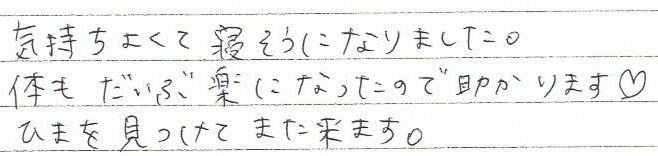 気持ちよくて寝そうになりました。
体もだいぶ楽になったので助かります♡
ひまを見つけてまた来ます。